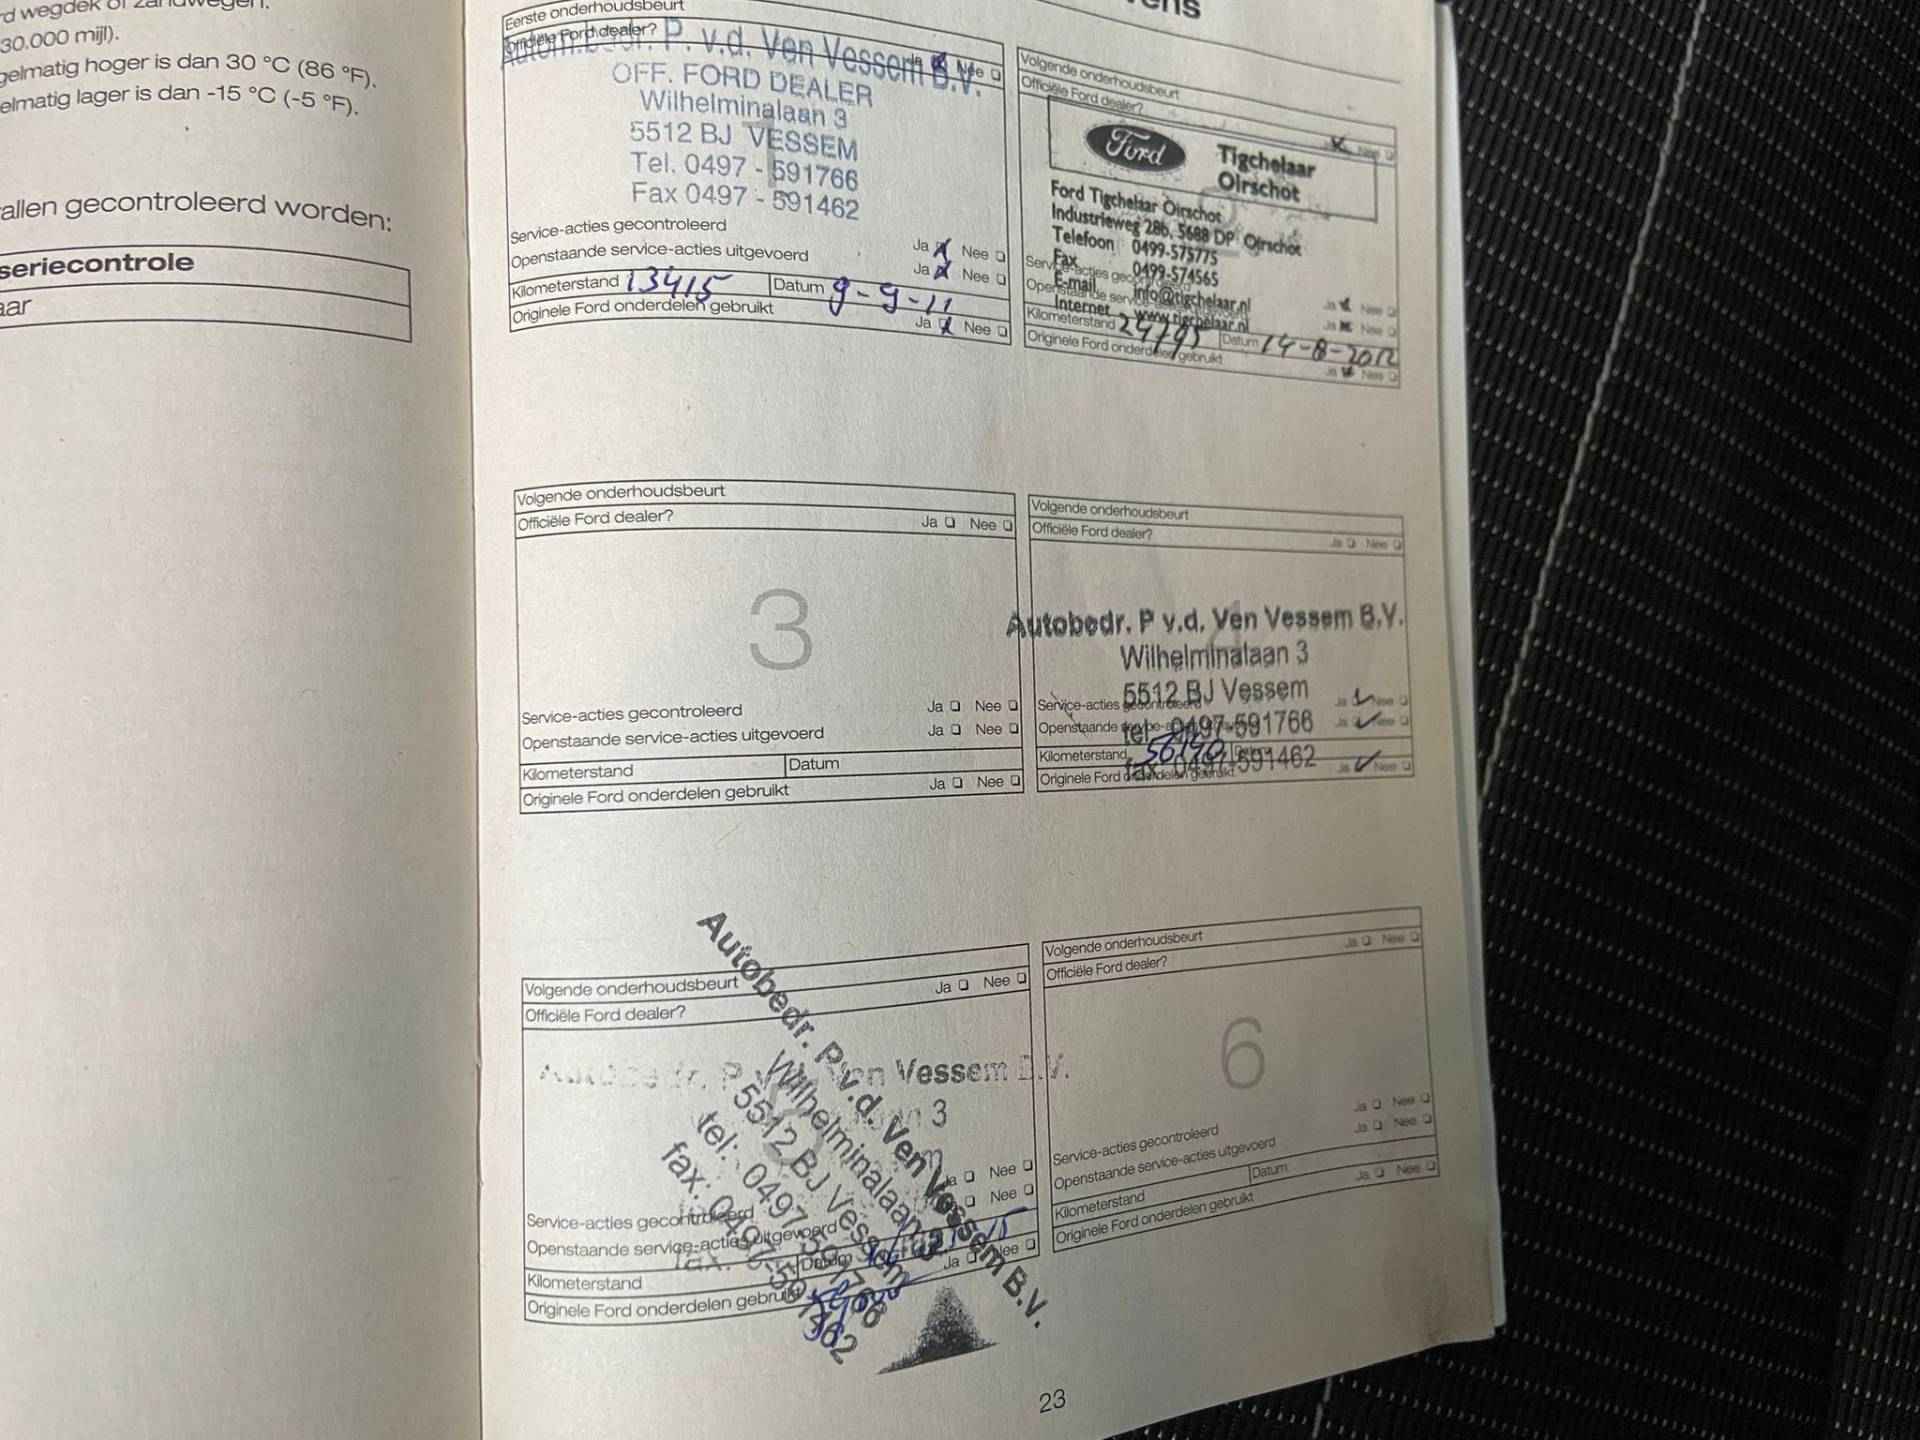 30.000 mijl).
gelmatig hoger is dan 30 °C (86 °F).
elmatig lager is dan -15 °C (-5 °F).
allen gecontroleerd worden:
seriecontrole
aar
Eerste onderhoudsbeurt
Officiële Ford dealer?
Ja Nee
P. v.d. Ven Vessem B.V.
OFF. FORD DEALER
Wilhelminalaan 3
5512 BJ VESSEM
Tel. 0497 - 591766
Fax 0497 - 591462
Service-acties gecontroleerd
Ja Nee
Openstaande service-acties uitgevoerd
Ja Nee
Kilometerstand 13415 Datum 9-9-11
Originele Ford onderdelen gebruikt
Ja Nee
Volgende onderhoudsbeurt
Officiële Ford dealer?
Nee
Ford Tigchelaar
Oirschot
Ford Tigchelaar Oirschot
Industrieweg 28b, 5688 DP Oirschot
Telefoon 0499-575775
Fax 0499-574565
E-mail info@tigchelaar.nl
Internet www.tigchelaar.nl
Ja Nee
Ja Nee
Kilometerstand Datum 14-8-2012
Originele Ford onderdelen gebruikt
Ja Nee
Volgende onderhoudsbeurt
Officiële Ford dealer?
Ja Nee
3
Service-acties gecontroleerd
Ja Nee
Openstaande service-acties uitgevoerd
Ja Nee
Kilometerstand Datum
Originele Ford onderdelen gebruikt
Ja Nee
Volgende onderhoudsbeurt
Officiële Ford dealer?
Ja Nee
Autobedr. P v.d. Ven Vessem B.V.
Wilhelminalaan 3
5512 BJ Vessem
tel: 0497-591766
fax: 0497-591462
Service-acties
Ja Nee
Openstaande
Ja Nee
Kilometerstand 56190
Originele Ford onderdelen gebruikt
Ja Nee
Volgende onderhoudsbeurt
Officiële Ford dealer?
Ja Nee
Ven Vessem B.V.
3
Autobedr. P v.d. Ven Vessem B.V.
Wilhelminalaan 3
5512 BJ Vessem
tel: 0497-591766
fax: 0497-591462
Service-acties gecontroleerd
Ja Nee
Openstaande service-acties uitgevoerd
Nee
Kilometerstand Datum
Originele Ford onderdelen gebruikt
Ja Nee
Volgende onderhoudsbeurt
Officiële Ford dealer?
Ja Nee
6
Service-acties gecontroleerd
Ja Nee
Openstaande service-acties uitgevoerd
Ja Nee
Kilometerstand Datum
Originele Ford onderdelen gebruikt
Ja Nee
23